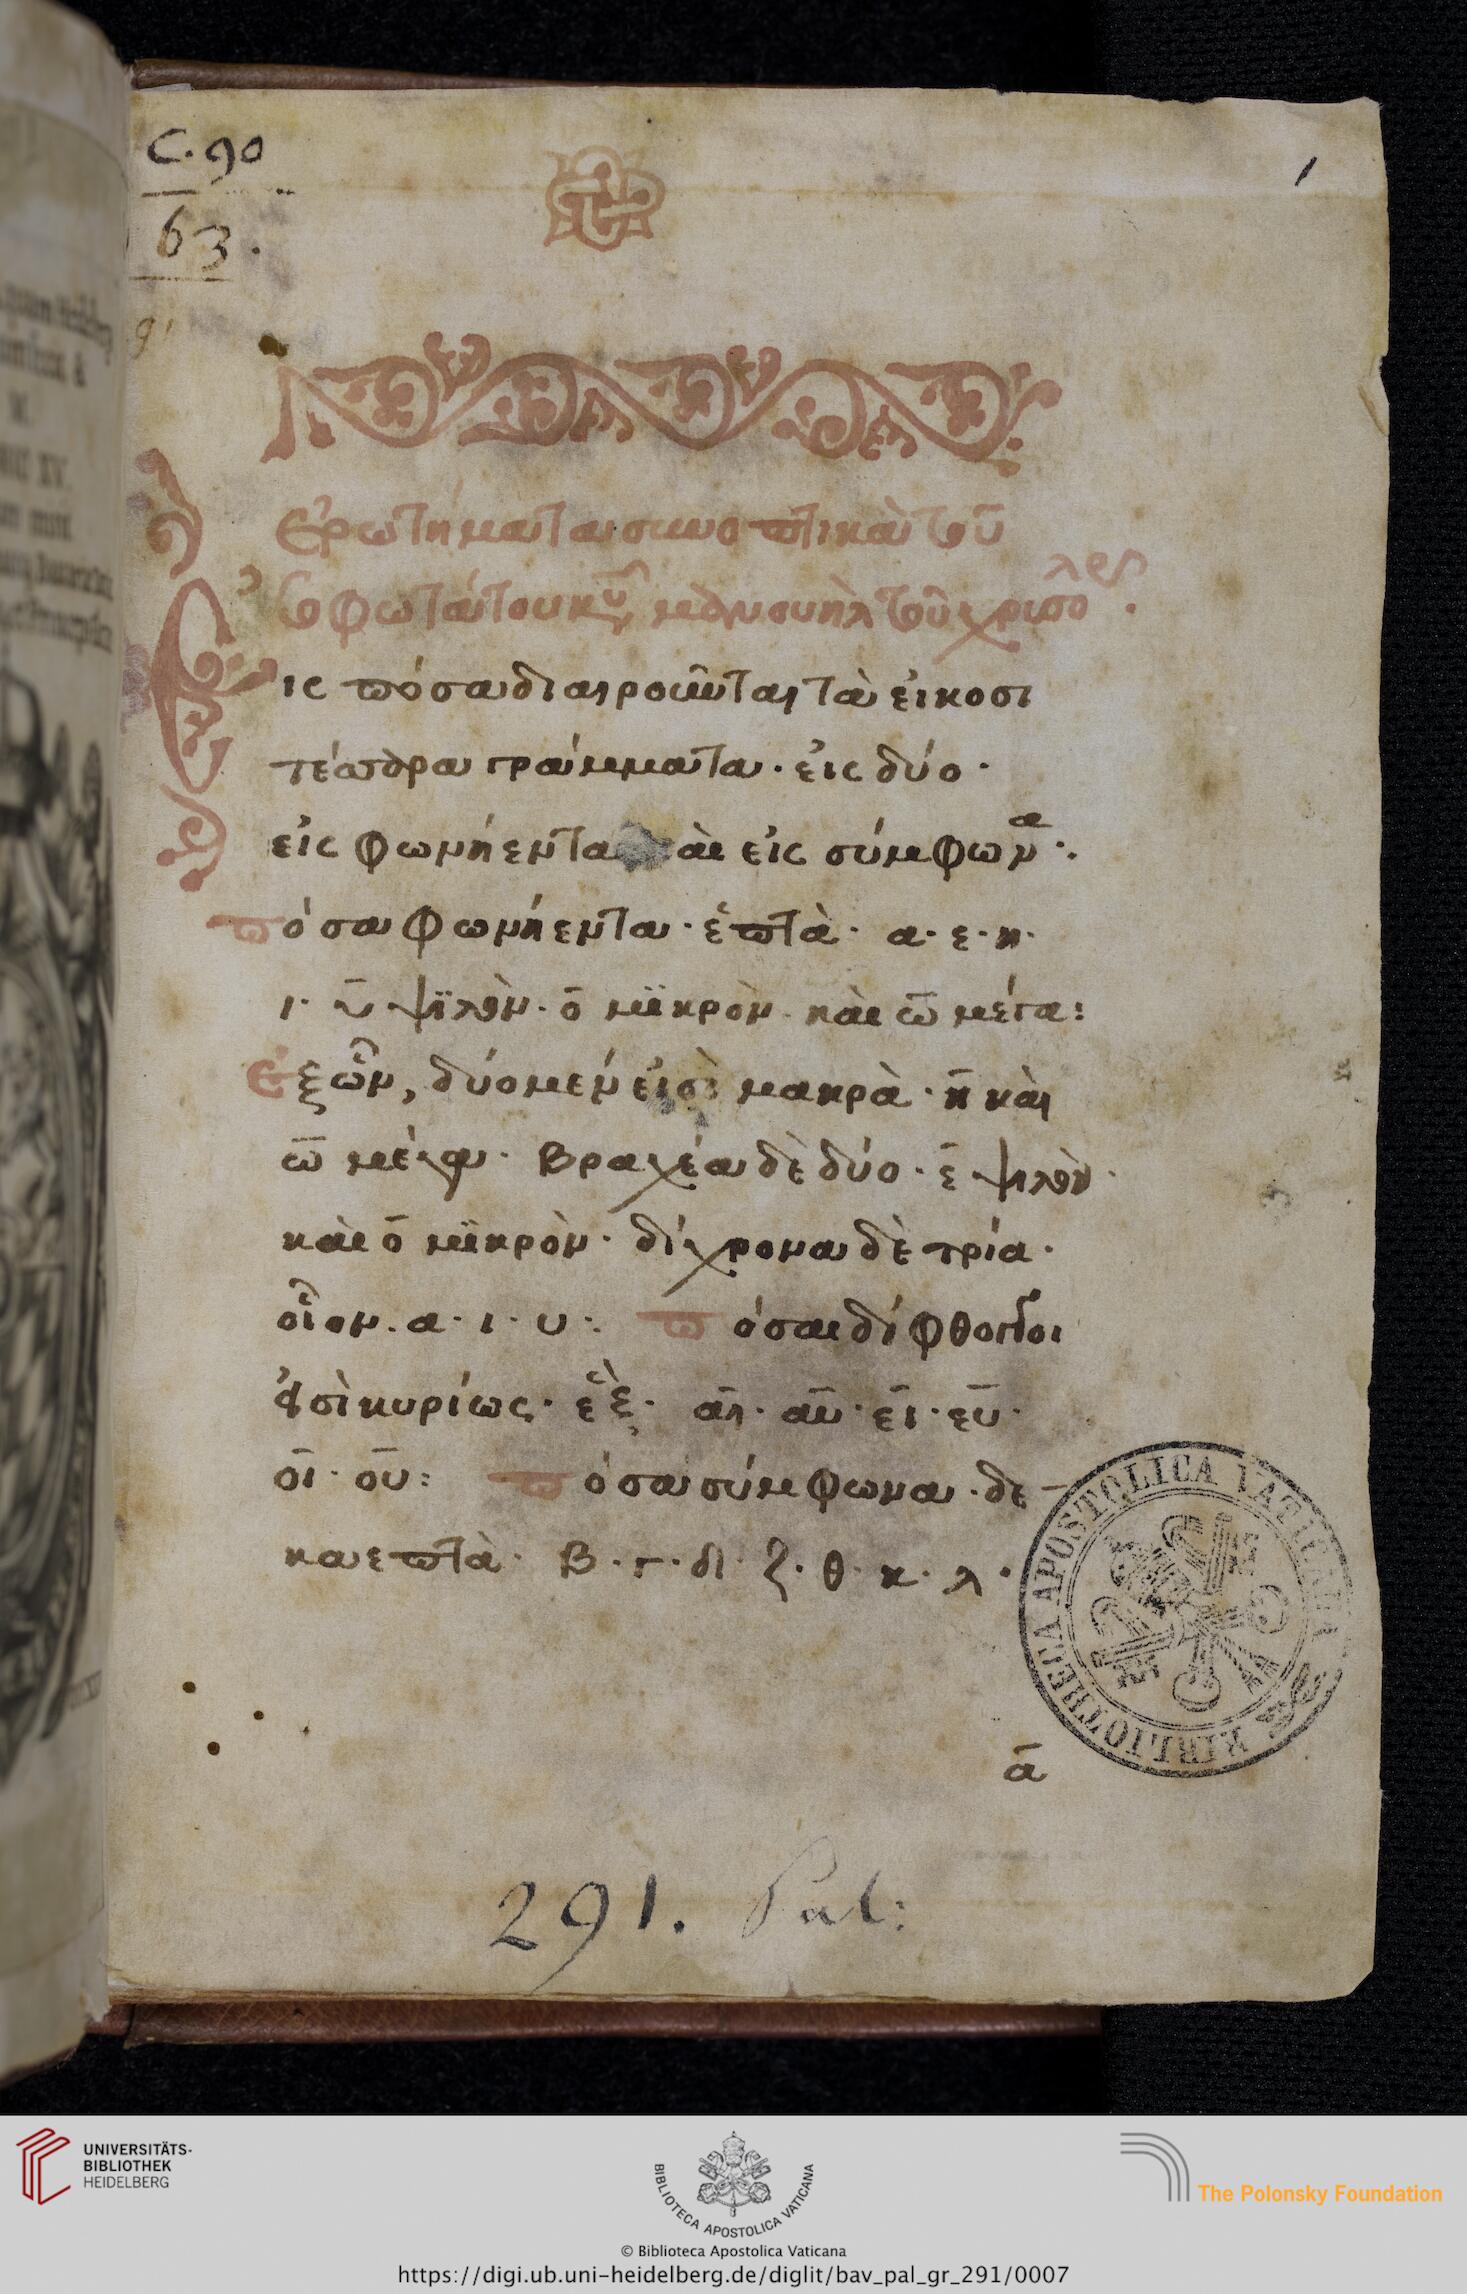 C. 90
63.
1
Ἐρωτήματα συνοπτικὰ τοῦ
σοφωτάτου κυροῦ μανουὴλ τοῦ χρισολορ.
Εἰς πόσα διαιροῦνται τὰ εἰκοσι
τέσσαρα γράμματα· εἰς δύο·
εἰς φωνήεντα καὶ εἰς σύμφωνα·.
πόσα φωνήεντα· ἑπτὰ· α· ε· η·
ι· υ̅ ψϊλὸν· ο̅ μϊκρὸν· καὶ ω̅ μέγα:
Ἐξ ὧν, δύο μέν εἰσὶ μακρὰ· η̅ καὶ
ω̅ μέγα· βραχέα δὲ δύο· ε̅ ψιλὸν·
καὶ ο̅ μϊκρὸν· δίχρονα δὲ τρία·
οἷον· α· ι· υ:· πόσαι δίφθογγοι
εἰσὶ κυρίως· ἓξ· αι̅· αυ̅· ει̅· ευ̅·
οι̅· ου̅: πόσα σύμφωνα· δε-
καεπτὰ· β· γ· δ· ζ· θ· κ· λ·
α̅
291. Pal:
BIBLIOTHECA APOSTOLICA VATICANA
UNIVERSITÄTS-
BIBLIOTHEK
HEIDELBERG
BIBLIOTECA APOSTOLICA VATICANA
The Polonsky Foundation
© Biblioteca Apostolica Vaticana
https://digi.ub.uni-heidelberg.de/diglit/bav_pal_gr_291/0007